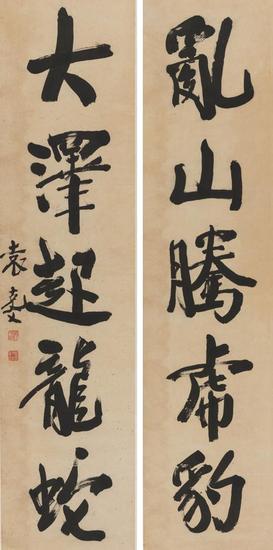 亂山騰虎豹
大澤起龍蛇
袁克文